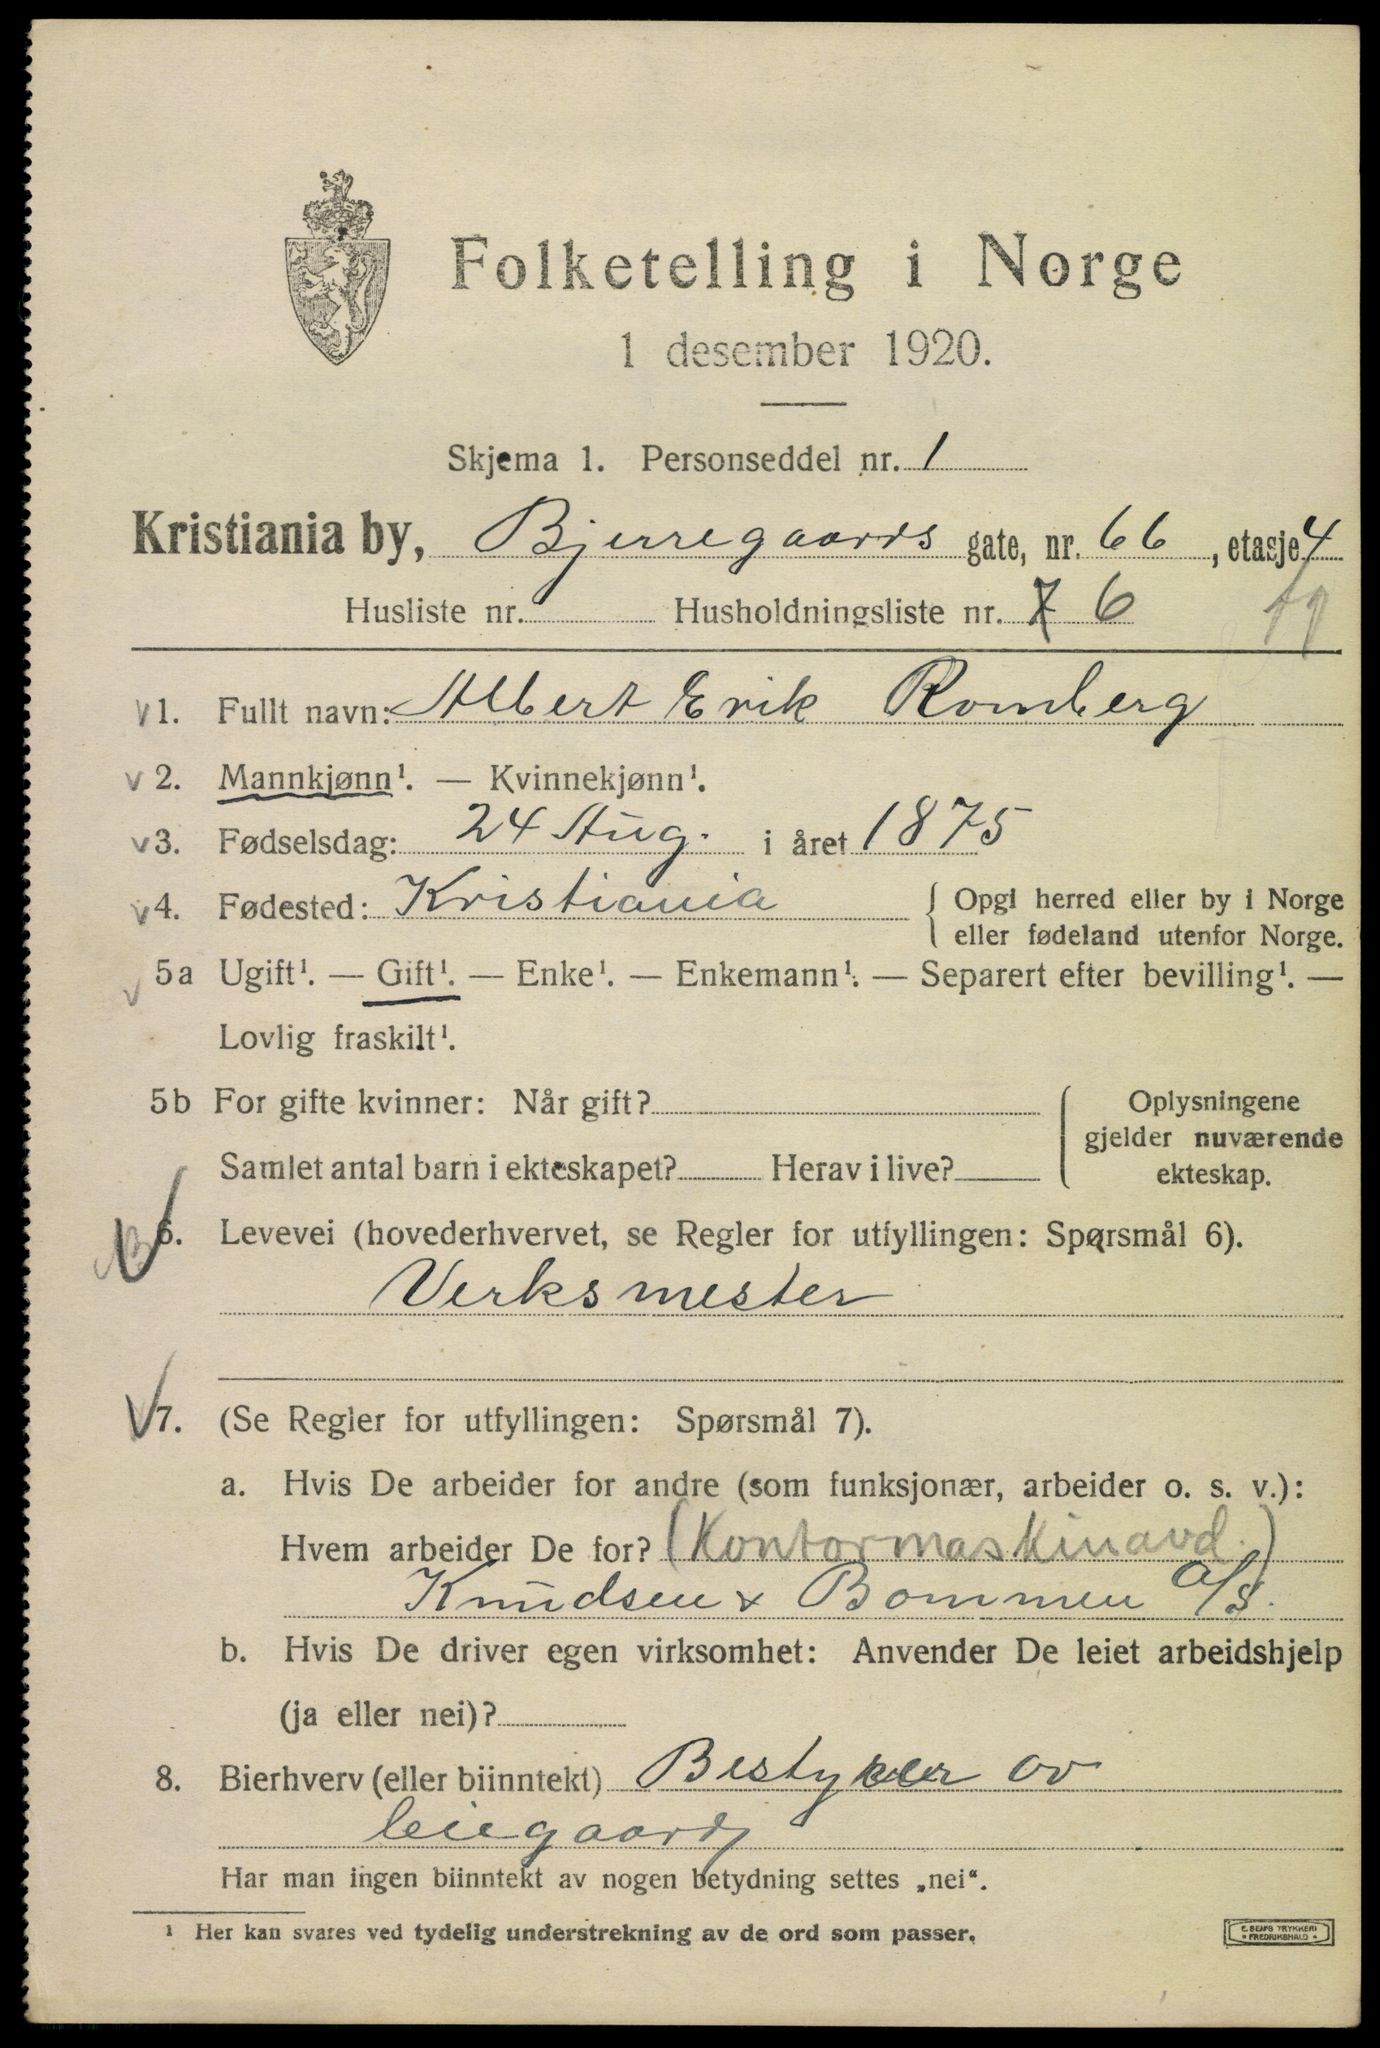 Folketelling i Norge
1 desember 1920.
Skjema 1. Personseddel nr. 1
Kristiania by, Bjerregaards gate, nr. 66, etasje 4
Husliste nr. Husholdningsliste nr. 7 6
1. Fullt navn: Albert Erik Romberg
2. Mannkjønn¹. — Kvinnekjønn¹.
3. Fødselsdag: 24 Aug. i året 1875
4. Fødested: Kristiania { Opgi herred eller by i Norge
eller fødeland utenfor Norge.
5a Ugift¹. — Gift¹. — Enke¹. — Enkemann¹. — Separert efter bevilling¹. —
Lovlig fraskilt¹.
5b For gifte kvinner: Når gift? Oplysningene
gjelder nuværende
Samlet antal barn i ekteskapet? Herav i live? ekteskap.
6. Levevei (hovederhvervet, se Regler for utfyllingen: Spørsmål 6).
Verksmester
7. (Se Regler for utfyllingen: Spørsmål 7).
a. Hvis De arbeider for andre (som funksjonær, arbeider o. s. v.):
Hvem arbeider De for? (Kontormaskinavd.)
Knudsen & Bommen A/S.
b. Hvis De driver egen virksomhet: Anvender De leiet arbeidshjelp
(ja eller nei)?
8. Bierhverv (eller biinntekt) Bestyrer av
leiegaard
Har man ingen biinntekt av nogen betydning settes „nei“.
¹ Her kan svares ved tydelig understrekning av de ord som passer.
E. SEMS TRYKKERI
FREDRIKSHALD